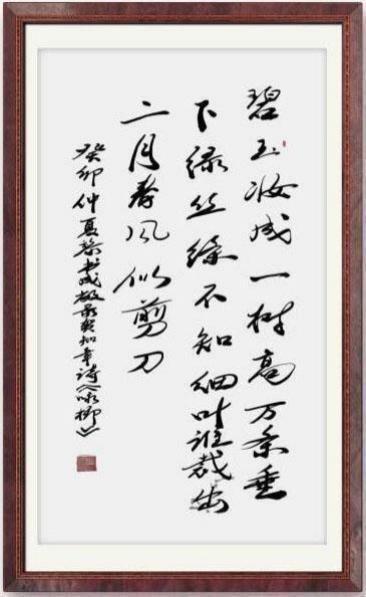 碧玉妆成一树高万条垂
下绿丝绦不知细叶谁裁出
二月春风似剪刀
癸卯仲夏 录贺知章诗《咏柳》